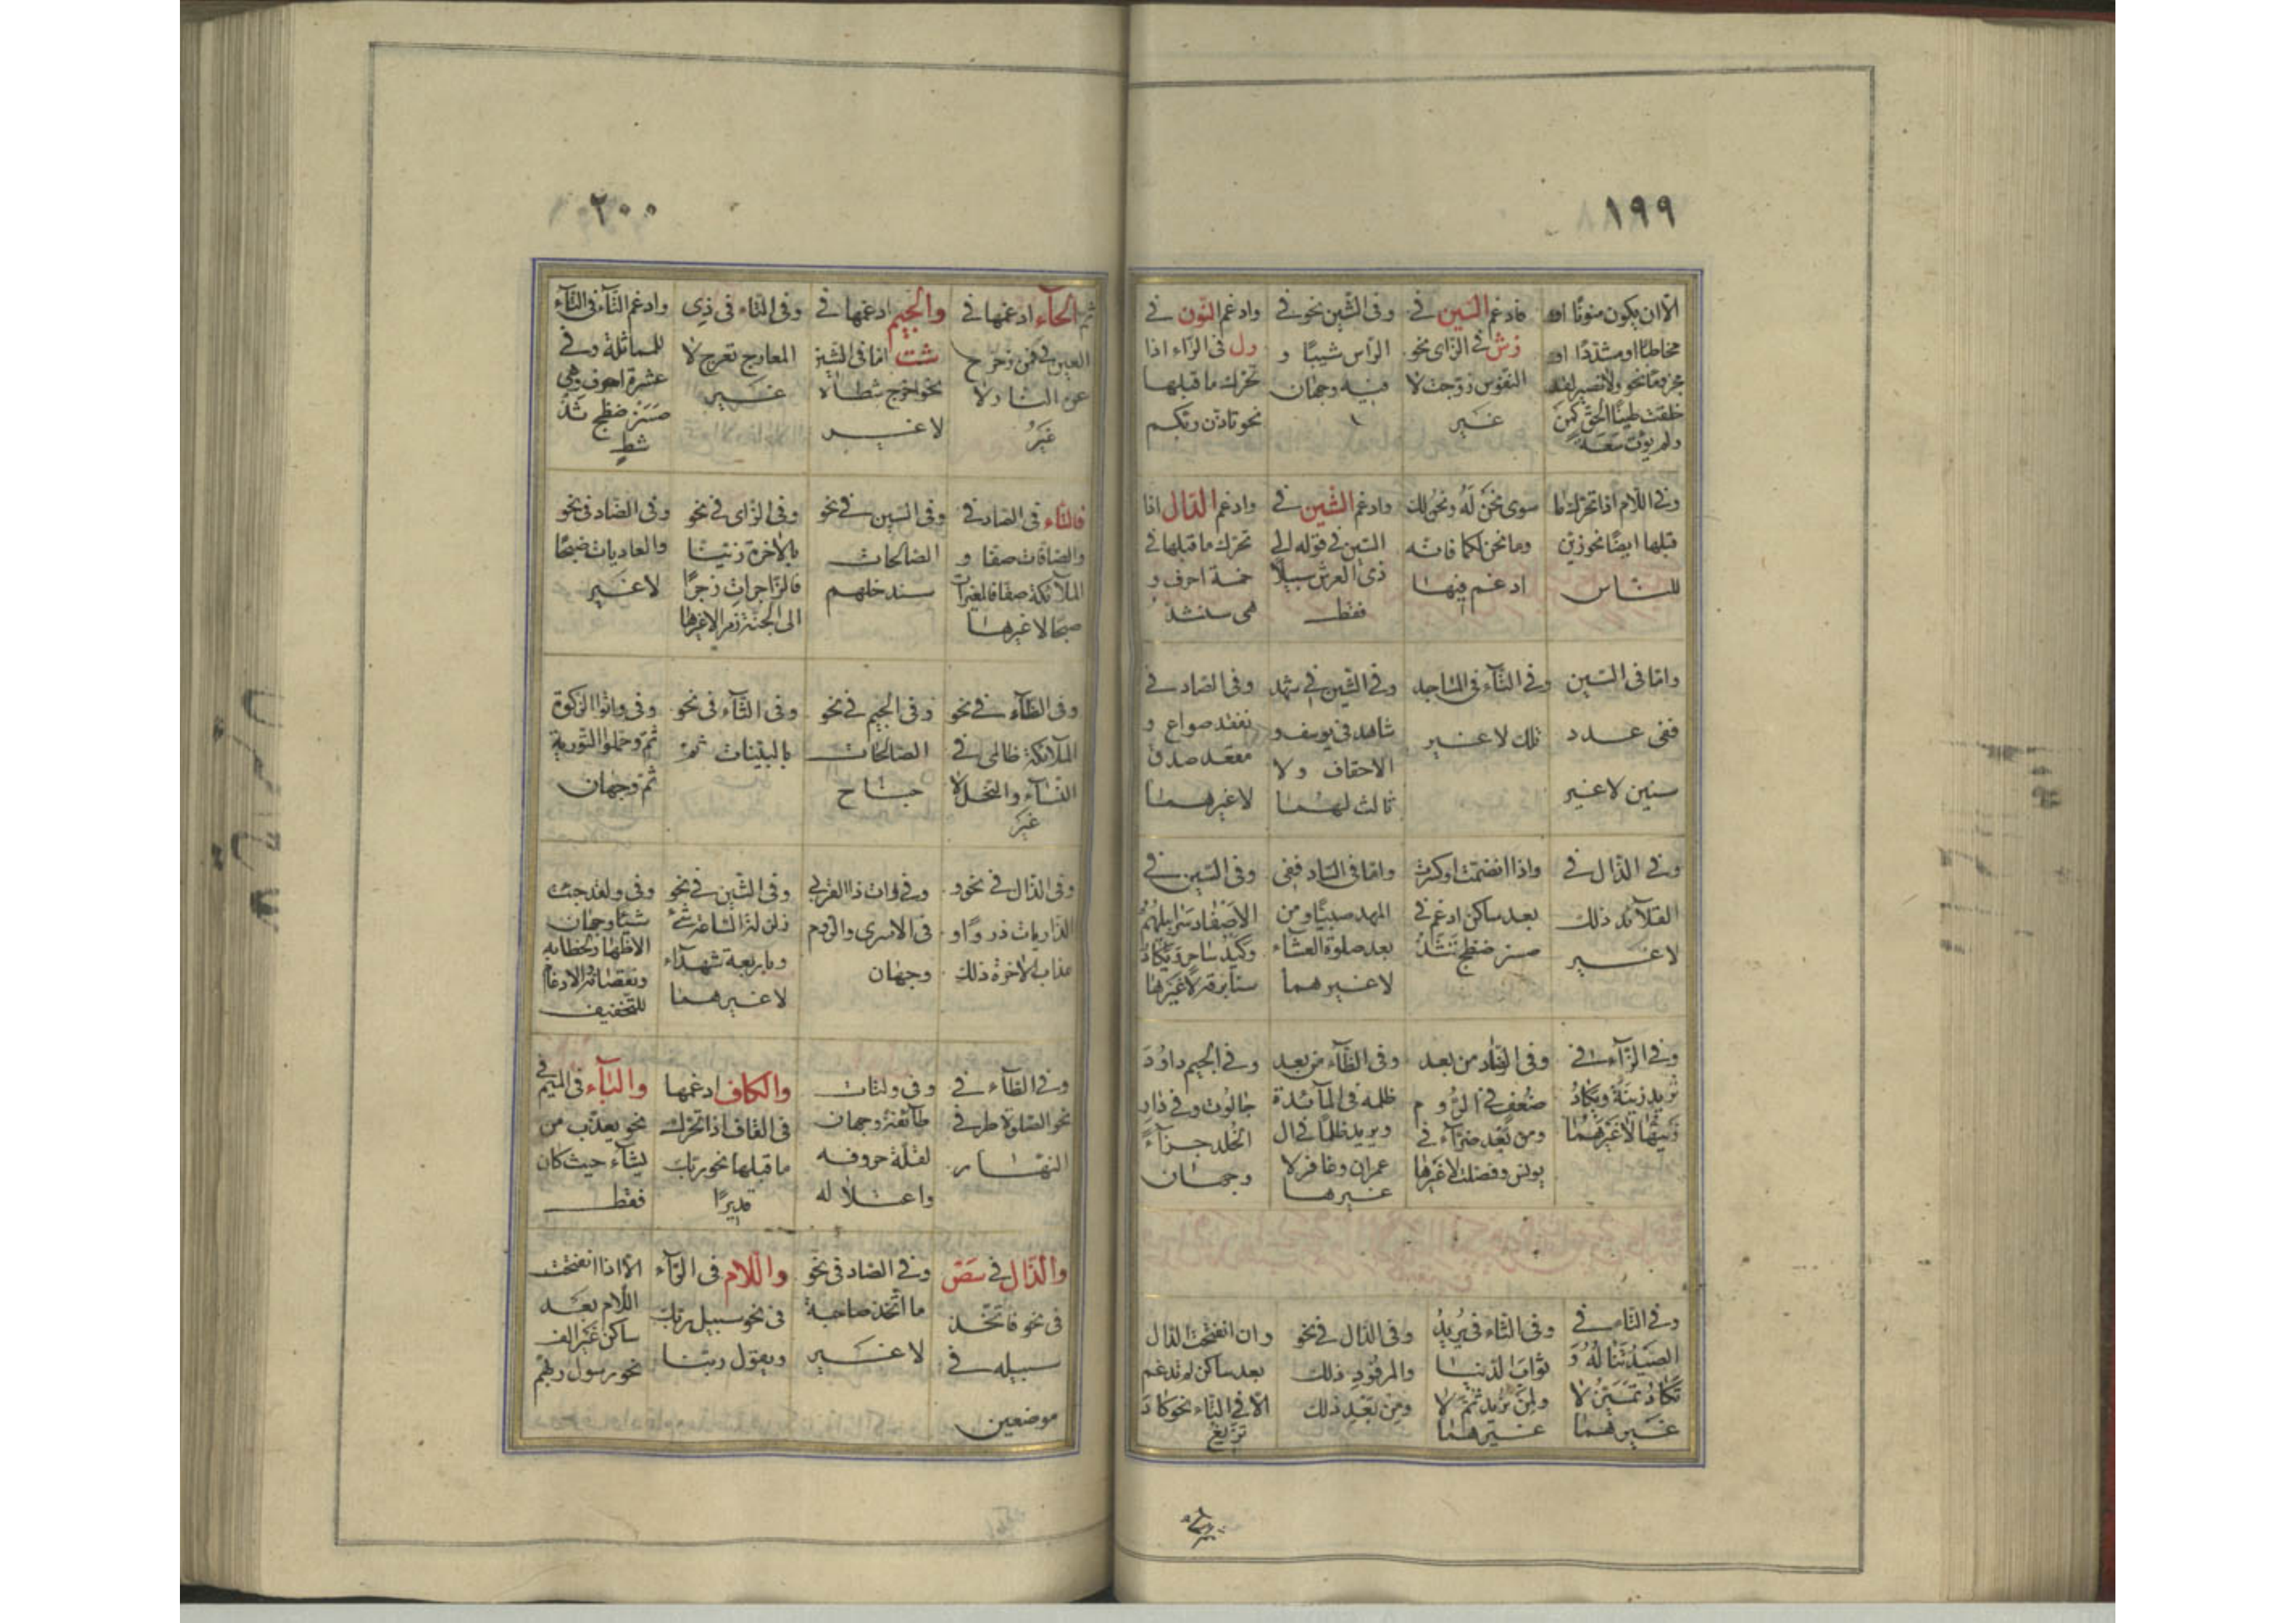 ١٩٩
الّا ان يكون منونًا او
مخاطبًا او مشددًا او
خلقت طينًا الحق كمن
ولم يؤت سعة
فادغم السين في
زش في الزاى نحو
النفوس زوجت لا
غير
وفى الشين نحو في
الراس شيبًا و
فيه وجهان
وادغم النون في
رل فى الراء اذا
تحرك ما قبلها
نحو تاذن ربكم
وفي اللام اذا تحرك ما
قبلها ايضًا نحو زين
للناس
سوى نحن له ونحن لك
وما نحن لكما فانه
ادغم فيها
وادغم الشين في
السين في قوله الى
ذى العرش سبيلًا
فقط
وادغم الدال اذا
تحرك ما قبلها في
خمسة احرف و
هى سنشد
واما فى السين
ففى عدد
سنين لا غير
وفي التاء فى المساجد
تلك لا غير
وفي الشين في شهد
شاهد فى يوسف و
الاحقاف ولا
ثالث لهما
وفى الصاد في
نفقد صواع و
مقعد صدق
لا غيرهما
وفي الذال في
القلائد ذلك
لا غير
واذا انضمت او كسرت
بعد ساكن ادغم في
واما فى الصاد ففى
المهد صبيًا ومن
بعد صلوة العشاء
لا غيرهما
وفى السين في
الاصفاد سرابيلهم
وكيد ساحر ويكاد
سنا برقه لا غيرها
وفي الزاء في
تريد زينة ويكاد
زيتها لا غيرهما
وفى الضاد من بعد
ضعف فى الروم
ومن بعد ضراء في
يونس وفصلت لا غيرها
وفى الظاء من بعد
ظلمه فى المائدة
ويريد ظلمًا في ال
عمران وغافر لا
غيرها
وفي الجيم داود
جالوت وفي دار
الخلد جزاء
وجهان
وفي التاء في
الصيد تناله و
تكاد تميز لا
غيرهما
وفى الثاء في يريد
ثواب الدنيا
ولمن نريد ثم لا
غيرهما
وفى الذال في نحو
والمرفود ذلك
ومن بعد ذلك
وان انفتحت الدال
بعد ساكن لم تدغم
الا في التاء نحو كاد
تزيغ
٢٠٠
ثم الحاء ادغمها في
العين فى فمن زحزح
عن النار ولا
غير
والجيم ادغمها في
شت اما فى الشين
نحو اخرج شطأه
لا غير
وفى التاء فى ذي
المعارج تعرج لا
غير
وادغم التاء فى التاء
للمماثلة وفي
عشرة احرف وهى
فالتاء فى الصاد في
والصافات صفا و
الملائكة صفا فالمغيرات
صبحًا لا غيرها
وفى السين في نحو
الصالحات
سندخلهم
وفى الزاى في نحو
بالاخرة زينا
فالزاجرات زجرًا
الى الجنة زمرا لا غيرها
وفى الضاد فى نحو
والعاديات ضبحًا
لا غير
وفى الظاء في نحو
الملائكة ظالمى في
النساء والنحل لا
غير
وفى الجيم في نحو
الصالحات
جناح
وفى الثاء فى نحو
بالبينات ثم
وفى واتوا الزكوة
ثم وحملوا التورية
ثم وجهان
وفى الذال فى نحو و
الذاريات ذروًا و
عذاب الاخرة ذلك
وفي وات ذا القربى
فى الاسرى والروم
وجهان
وفى الشين في نحو
زلزلة الساعة شئ
وباربعة شهداء
لا غيرهما
وفى ولقد جئت
شيئا وجهان
الاظهار لخطابه
ونقصانه والادغام
للتخفيف
وفي الطاء في
نحو الصلوة طرفى
النهار
وفى ولتات
طائفة وجهان
لقلة حروفه
واعتلاله
والكاف ادغمها
فى القاف اذا تحرك
ما قبلها نحو ربك
قديرًا
والباء فى الميم في
نحو يعذب من
يشاء حيث كان
فقط
والذال في سص
فى نحو فاتخذ
سبيله في
موضعين
وفي الصاد فى نحو
ما اتخذ صاحبة
لا غير
واللام فى الراء
فى نحو سبيل ربك
ويقول ربنا
الا اذا انفتحت
اللام بعد
ساكن غير الف
نحو رسول ربهم